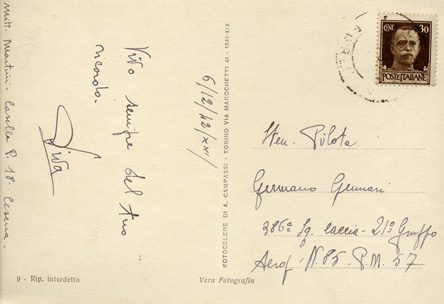 mitt. Martini - Casella P. 18. Cesena.
Vivo sempre del tuo
ricordo.
6/12/42/XXI/
FOTOCELERE DI A. CAMPASSI - TORINO VIA MAROCHETTI 41 - 1941-XIX
CENT. 30
POSTE ITALIANE
Sten. Pilota
Germano Gennari
386ª Sq. Caccia - 21º Gruppo
Aerop. N. 85. P.M. 37
9 - Rip. interdetta
Vera Fotografia